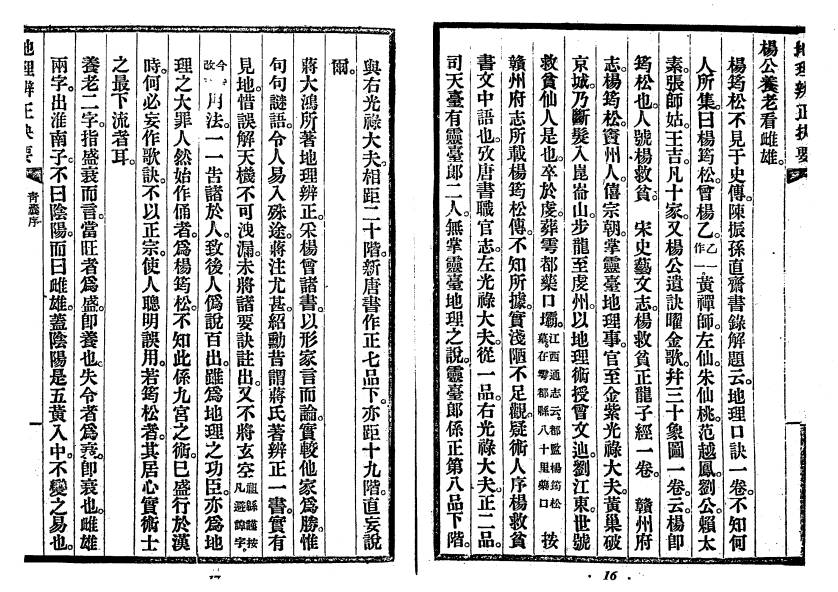 地理辨正抉要
楊公養老看雌雄。
楊筠松不見于史傳。陳振孫直齋書錄解題云。地理口訣一卷。不知何
人所集。曰楊筠松曾楊乙。乙一作黃禪師左仙朱仙桃范越鳳劉公賴太
素張師姑王吉。凡十家。又楊公遺訣曜金歌幷三十象圖一卷。云楊卽
筠松也。人號楊救貧。　宋史藝文志。楊救貧正龍子經一卷。　贛州府
志。楊筠松。竇州人。僖宗朝。掌靈臺地理事。官至金紫光祿大夫。黃巢破
京城。乃斷髮入崑崙山步龍。至虔州。以地理術授曾文辿劉江東。世號
救貧仙人是也。卒於虔。葬雩都藥口壩。江西通志云。都監楊筠松墓。在雩都縣八十里藥口　按
贛州府志所載楊筠松傳。不知所據。實淺陋不足觀。疑術人序楊救貧
書文中語也。攷唐書職官志。左光祿大夫。從一品。右光祿大夫。正二品。
司天臺有靈臺郎二人。無掌靈臺地理之說。靈臺郎係正第八品下階。
16
與右光祿大夫。相距二十階。新唐書作正七品下。亦距十九階。直妄說
爾。
蔣大鴻所著地理辨正。采楊曾諸書。以形家言而論。實較他家爲勝。惟
句句謎語。令人易入殊途。蔣注尤甚。紹勳昔謂蔣氏著辨正一書。實有
見地。惜誤解天機不可洩漏。未將諸要訣註出。又不將玄空祖緜謹按凡避諱字。
今改　用法。一一告諸於人。致後人僞說百出。雖爲地理之功臣。亦爲地
理之大罪人。然始作俑者。爲楊筠松。不知此係九宮之術。巳盛行於漢
時。何必妄作歌訣。不以正宗。使人聰明誤用。若筠松者。其居心實術士
之最下流者耳。
養老二字。指盛衰而言。當旺者爲盛。卽養也。失令者爲衰。卽衰也。雌雄
兩字。出淮南子。不曰陰陽。而曰雌雄。蓋陰陽是五黃入中。不變之易也。
地理辨正抉要
青囊序
17